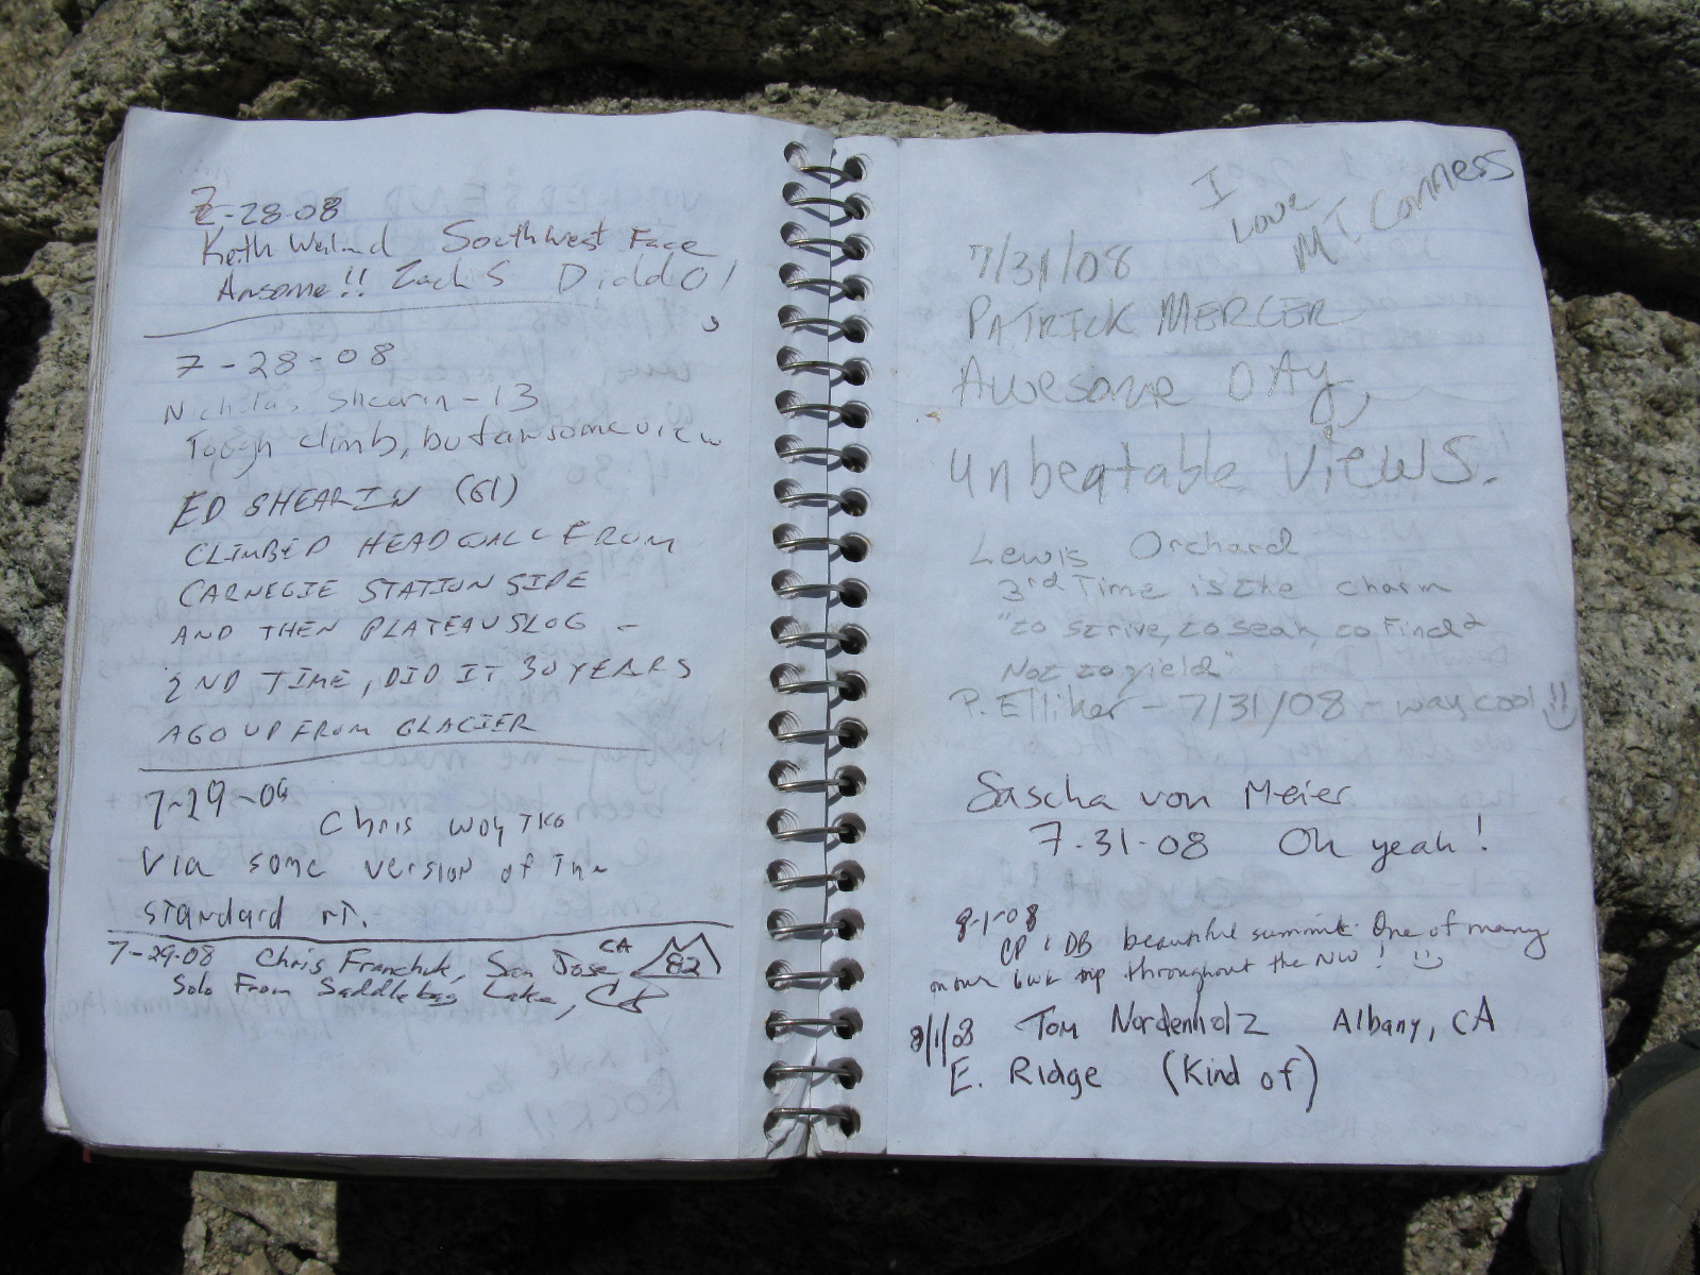 7-28-08
Keith Southwest Face
Awsome!! Zach S Diddo!
7-28-08
Nicholas Shearin - 13
Tough climb, but awsome view
ED SHEARIN (61)
CLIMBED HEADWALL FROM
CARNEGIE STATION SIDE
AND THEN PLATEAU SLOG -
2ND TIME, DID IT 30 YEARS
AGO UP FROM GLACIER
7-29-08
Chris Woytko
Via some version of the
standard rt.
7-29-08 Chris Franchuk, San Jose, CA 82
Solo From Saddlebag Lake,
I
Love
MT. Conness
7/31/08
PATRICK MERCER
Awesome DAy,
unbeatable views.
Lewis Orchard
3rd Time is the charm
"to strive, to seak, to find &
Not to yield"
P. Elliker - 7/31/08 - way cool!!
Sascha von Meier
7.31.08 Oh yeah!
8-1-08
CP & DB beautiful summit. One of many
on our 6wk trip throughout the NW! :)
8/1/08 Tom Nordenholz Albany, CA
E. Ridge (Kind of)